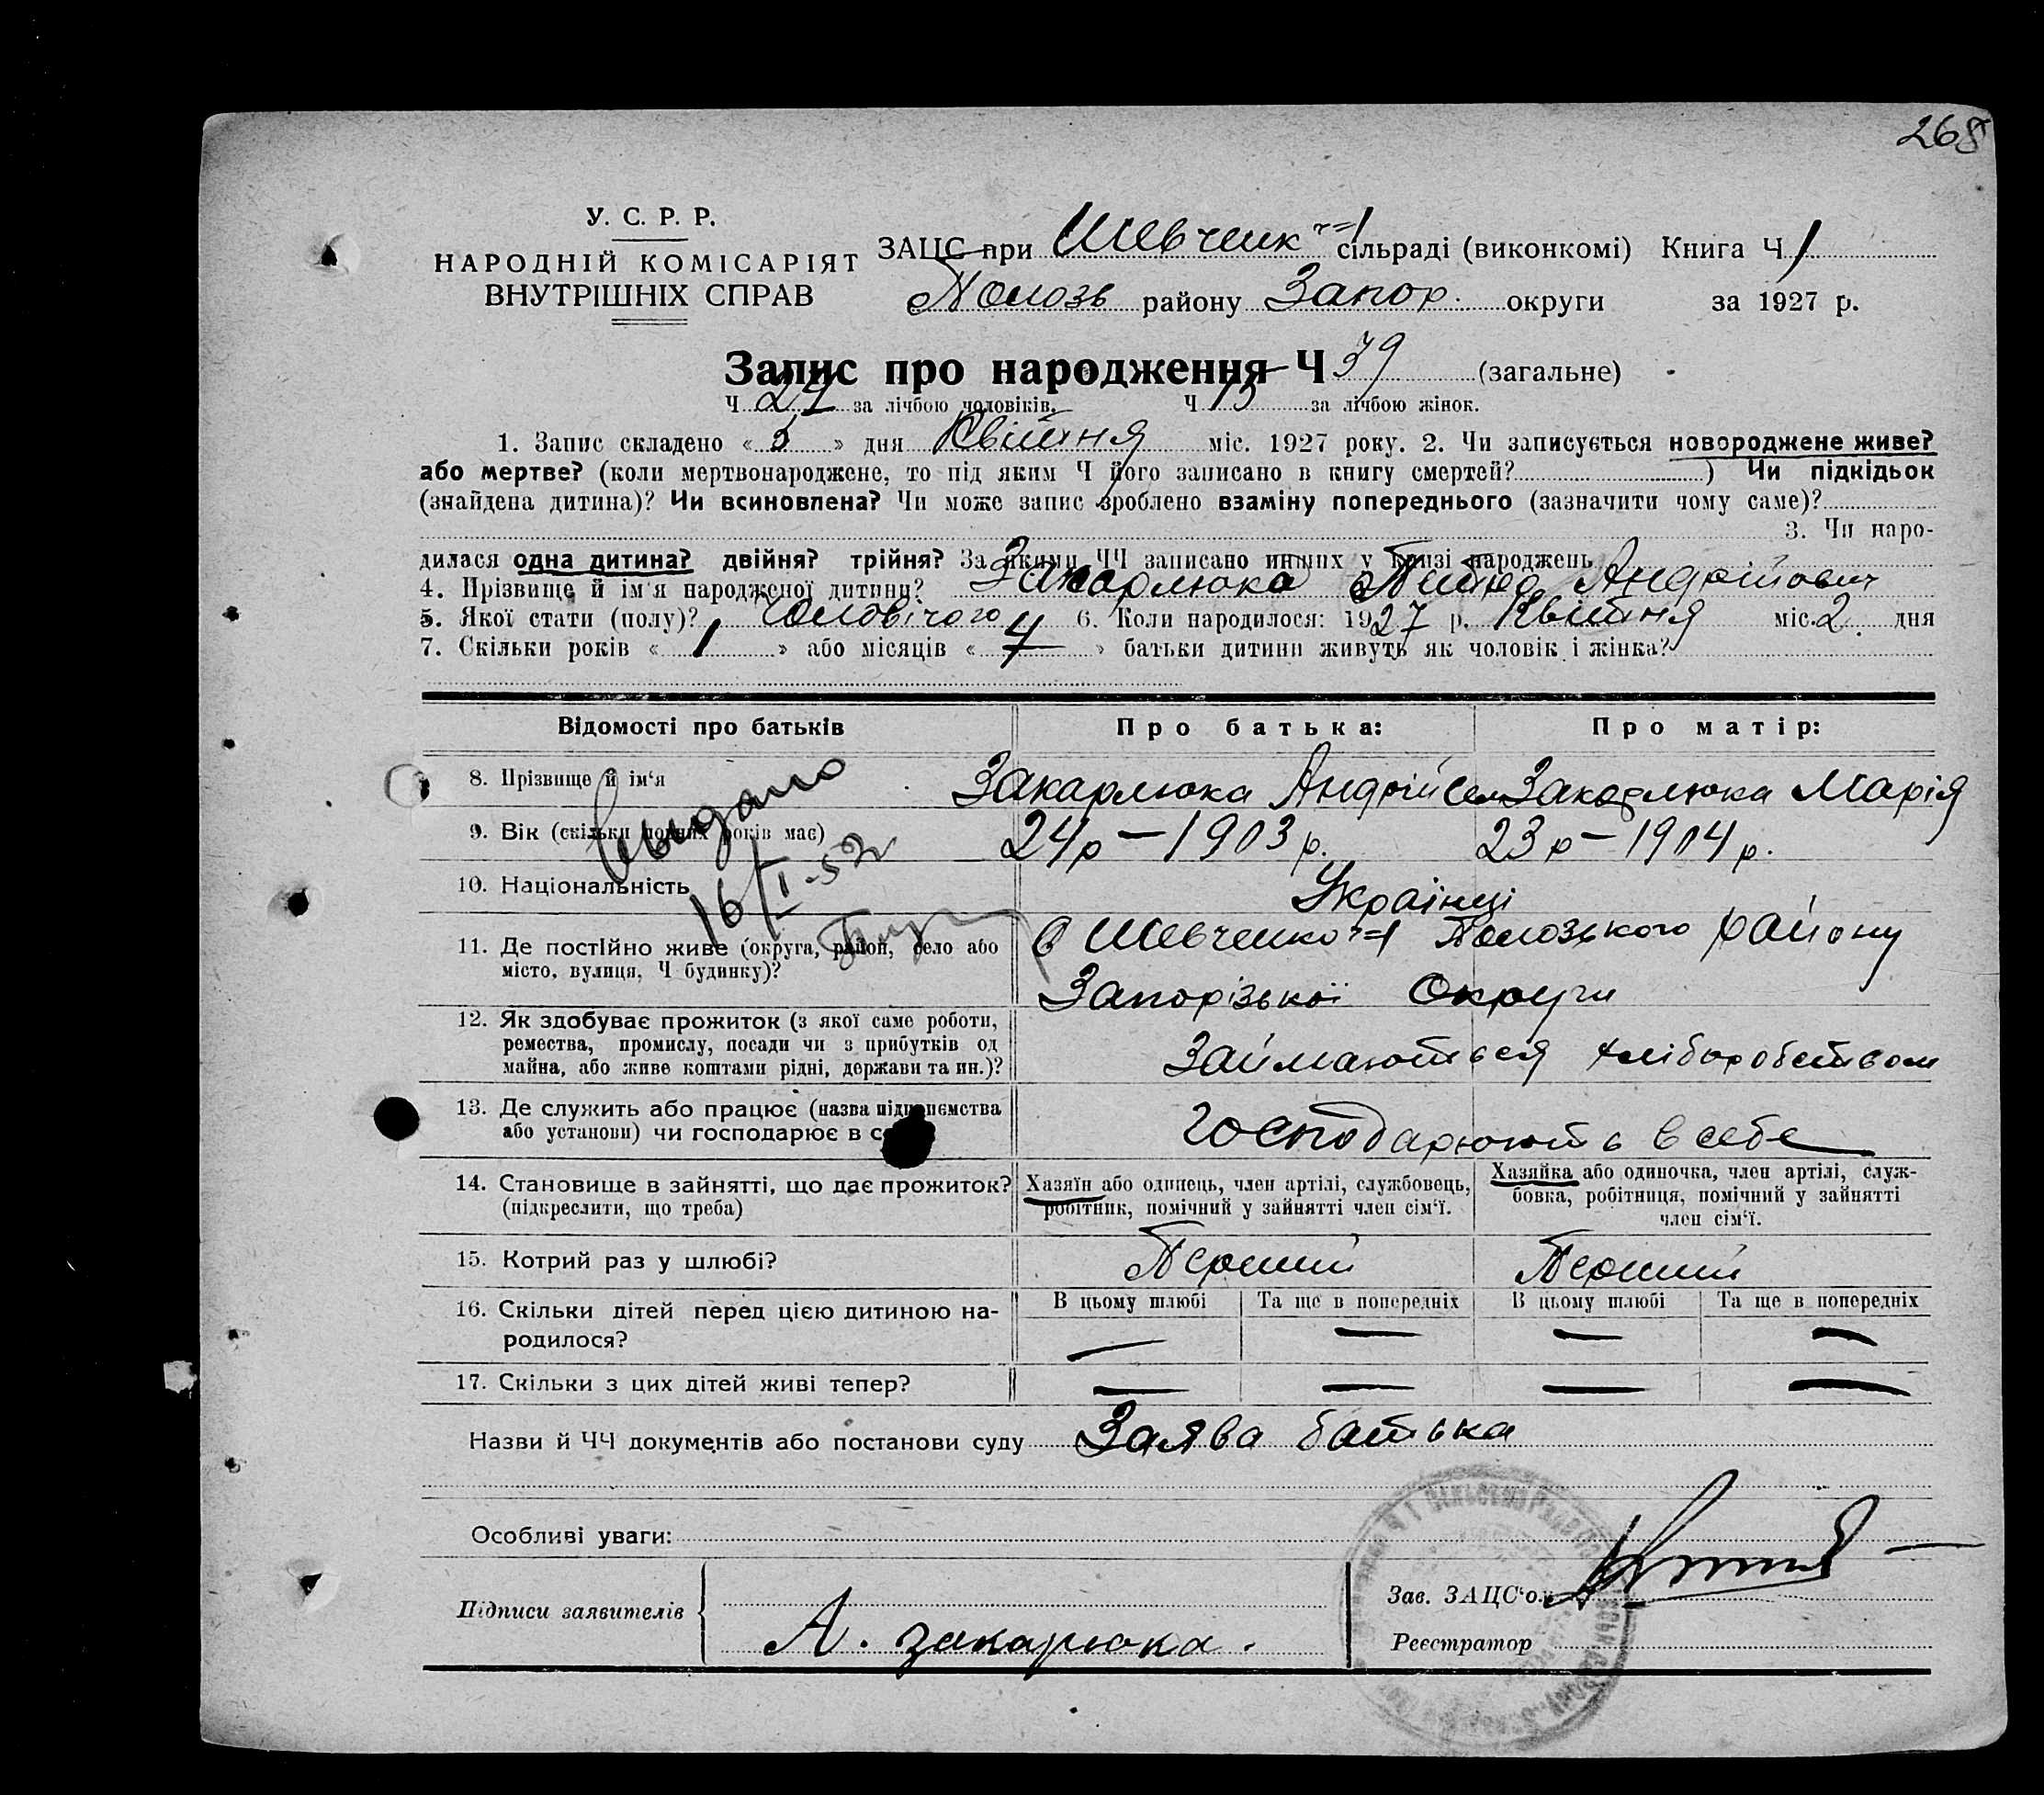 268
У. С. Р. Р.
НАРОДНІЙ КОМІСАРІЯТ
ВНУТРІШНІХ СПРАВ
ЗАЦС при Шевченк ч=1 сільраді (виконкомі) Книга Ч 1
Полозь району Запор. округи за 1927 р.
Запис про народження Ч 39 (загальне)
Ч 24 за лічбою чоловіків. Ч 15 за лічбою жінок.
1. Запис складено « 5 » дня Квітня міс. 1927 року. 2. Чи записується новороджене живе?
або мертве? (коли мертвонароджене, то під яким Ч його записано в книгу смертей? ) Чи підкідьок
(знайдена дитина)? Чи всиновлена? Чи може запис зроблено взаміну попереднього (зазначити чому саме)?
3. Чи наро-
дилася одна дитина? двійня? трійня? За якими ЧЧ записано инших у книзі народжень
4. Прізвище й ім'я народженої дитини? Закарлюка Андрійович
5. Якої стати (полу)? Чоловічого 6. Коли народилося: 1927 р. Квітня міс. 2 дня
7. Скільки років « 1 » або місяців « 4 » батьки дитини живуть як чоловік і жінка?
Відомості про батьків Про батька: Про матір:
8. Прізвище й ім'я Закарлюка Андрій Сем Закарлюка Марія
9. Вік (скільки повних років має) 24 р – 1903 р. 23 р – 1904 р.
Выдано
16/I-52
10. Національність Українці
11. Де постійно живе (округа, район, село або
місто, вулиця, Ч будинку)?
в Шевченко ч=1 Полозького району
Запорізької Округи
12. Як здобуває прожиток (з якої саме роботи,
ремества, промислу, посади чи з прибутків од
майна, або живе коштами рідні, держави та ин.)?
Займаються хліборобством
13. Де служить або працює (назва підприємства
або установи) чи господарює в с
Господарюють в себе
14. Становище в зайнятті, що дає прожиток?
(підкреслити, що треба)
Хазяїн або одинець, член артілі, службовець,
робітник, помічний у зайнятті член сім'ї.
Хазяйка або одиночка, член артілі, служ-
бовка, робітниця, помічний у зайнятті
член сім'ї.
15. Котрий раз у шлюбі? Перший Перший
16. Скільки дітей перед цією дитиною на-
родилося?
В цьому шлюбі Та ще в попередніх В цьому шлюбі Та ще в попередніх
— — — —
17. Скільки з цих дітей живі тепер? — — — —
Назви й ЧЧ документів або постанови суду Заява батька
Особливі уваги:
Підписи заявителів
А. закарлюка.
Зав. ЗАЦС'ом
Реєстратор